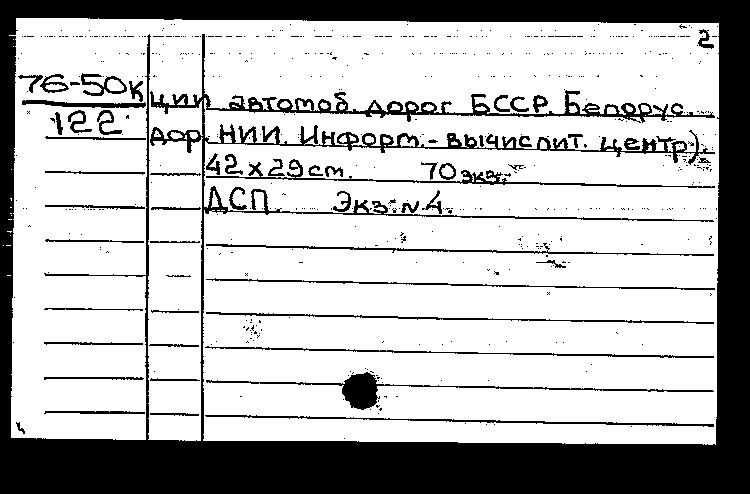 2
76-50к
122
ции автомоб. дорог БССР. Белорус.
дор. НИИ. Информ.- вычислит. центр).
42 х 29 см. 70 экз.
ДСП. Экз. N 4.